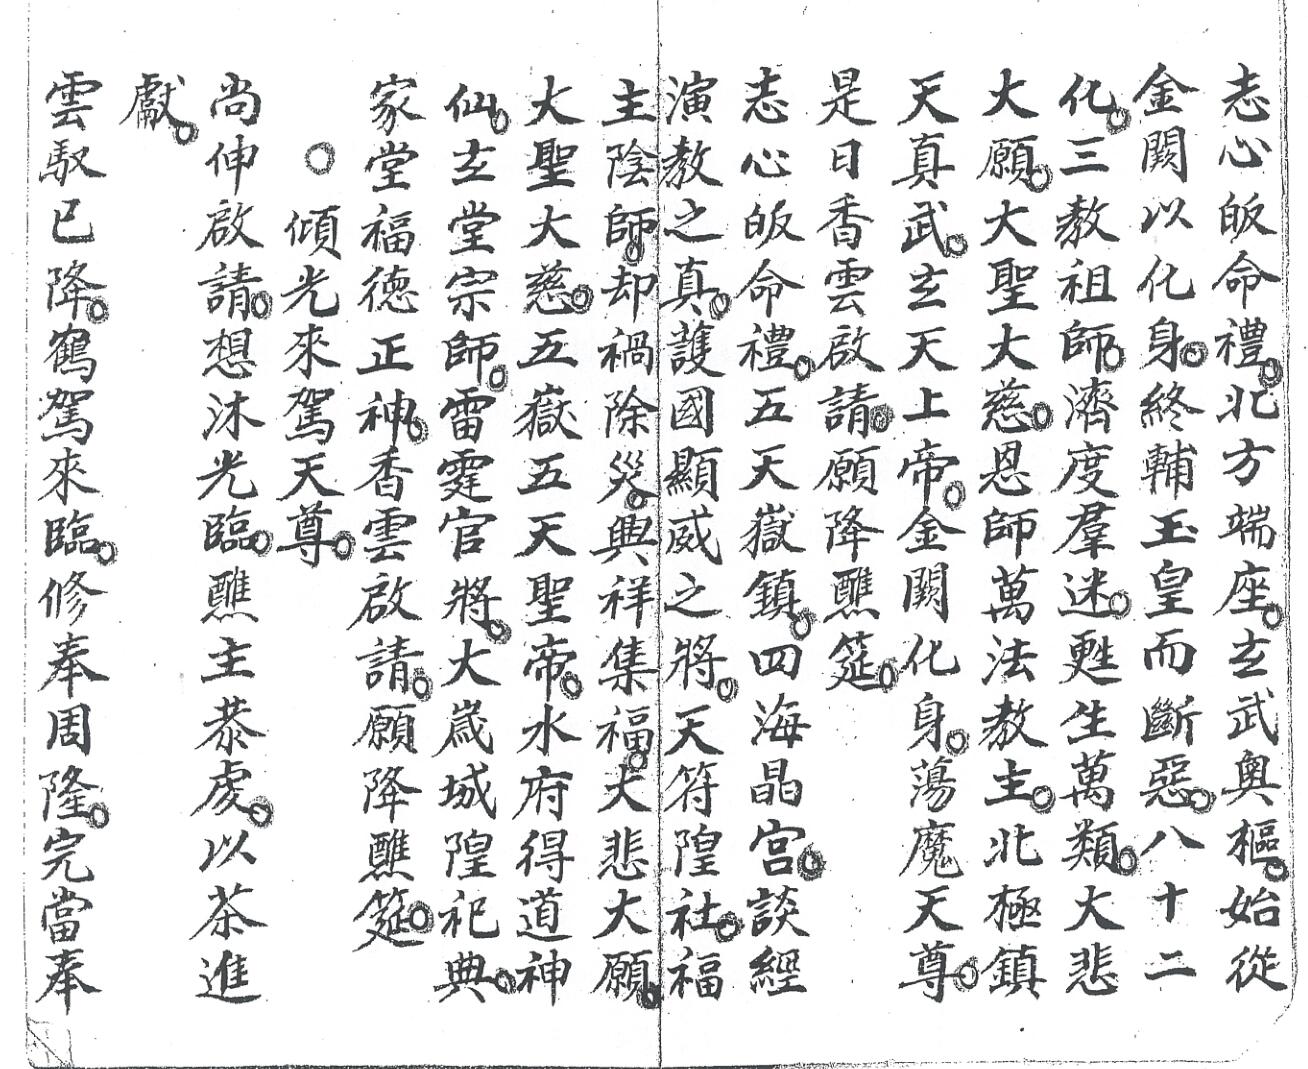 志心皈命禮。北方端座。玄武奧樞。始從
金闕以化身。終輔玉皇而斷惡。八十二
化。三教祖師。濟度羣迷。甦生萬類。大悲
大願。大聖大慈。恩師萬法教主。北極鎮
天真武。玄天上帝。金闕化身。蕩魔天尊。
是日香雲啟請。願降醮筵。
志心皈命禮。五天嶽鎮。四海晶宮。談經
演教之真。護國顯威之將。天符隍社。福
主陰師。却禍除災。興祥集福。大悲大願。
大聖大慈。五嶽五天聖帝。水府得道神
仙。玄堂宗師。雷霆官將。大嵗城隍祀典。
家堂福德正神。香雲啟請。願降醮筵。
○傾光來駕天尊。
尚伸啟請。想沐光臨。醮主恭虔。以茶進
獻。
雲馭已降。鶴駕來臨。修奉周隆。完當奉